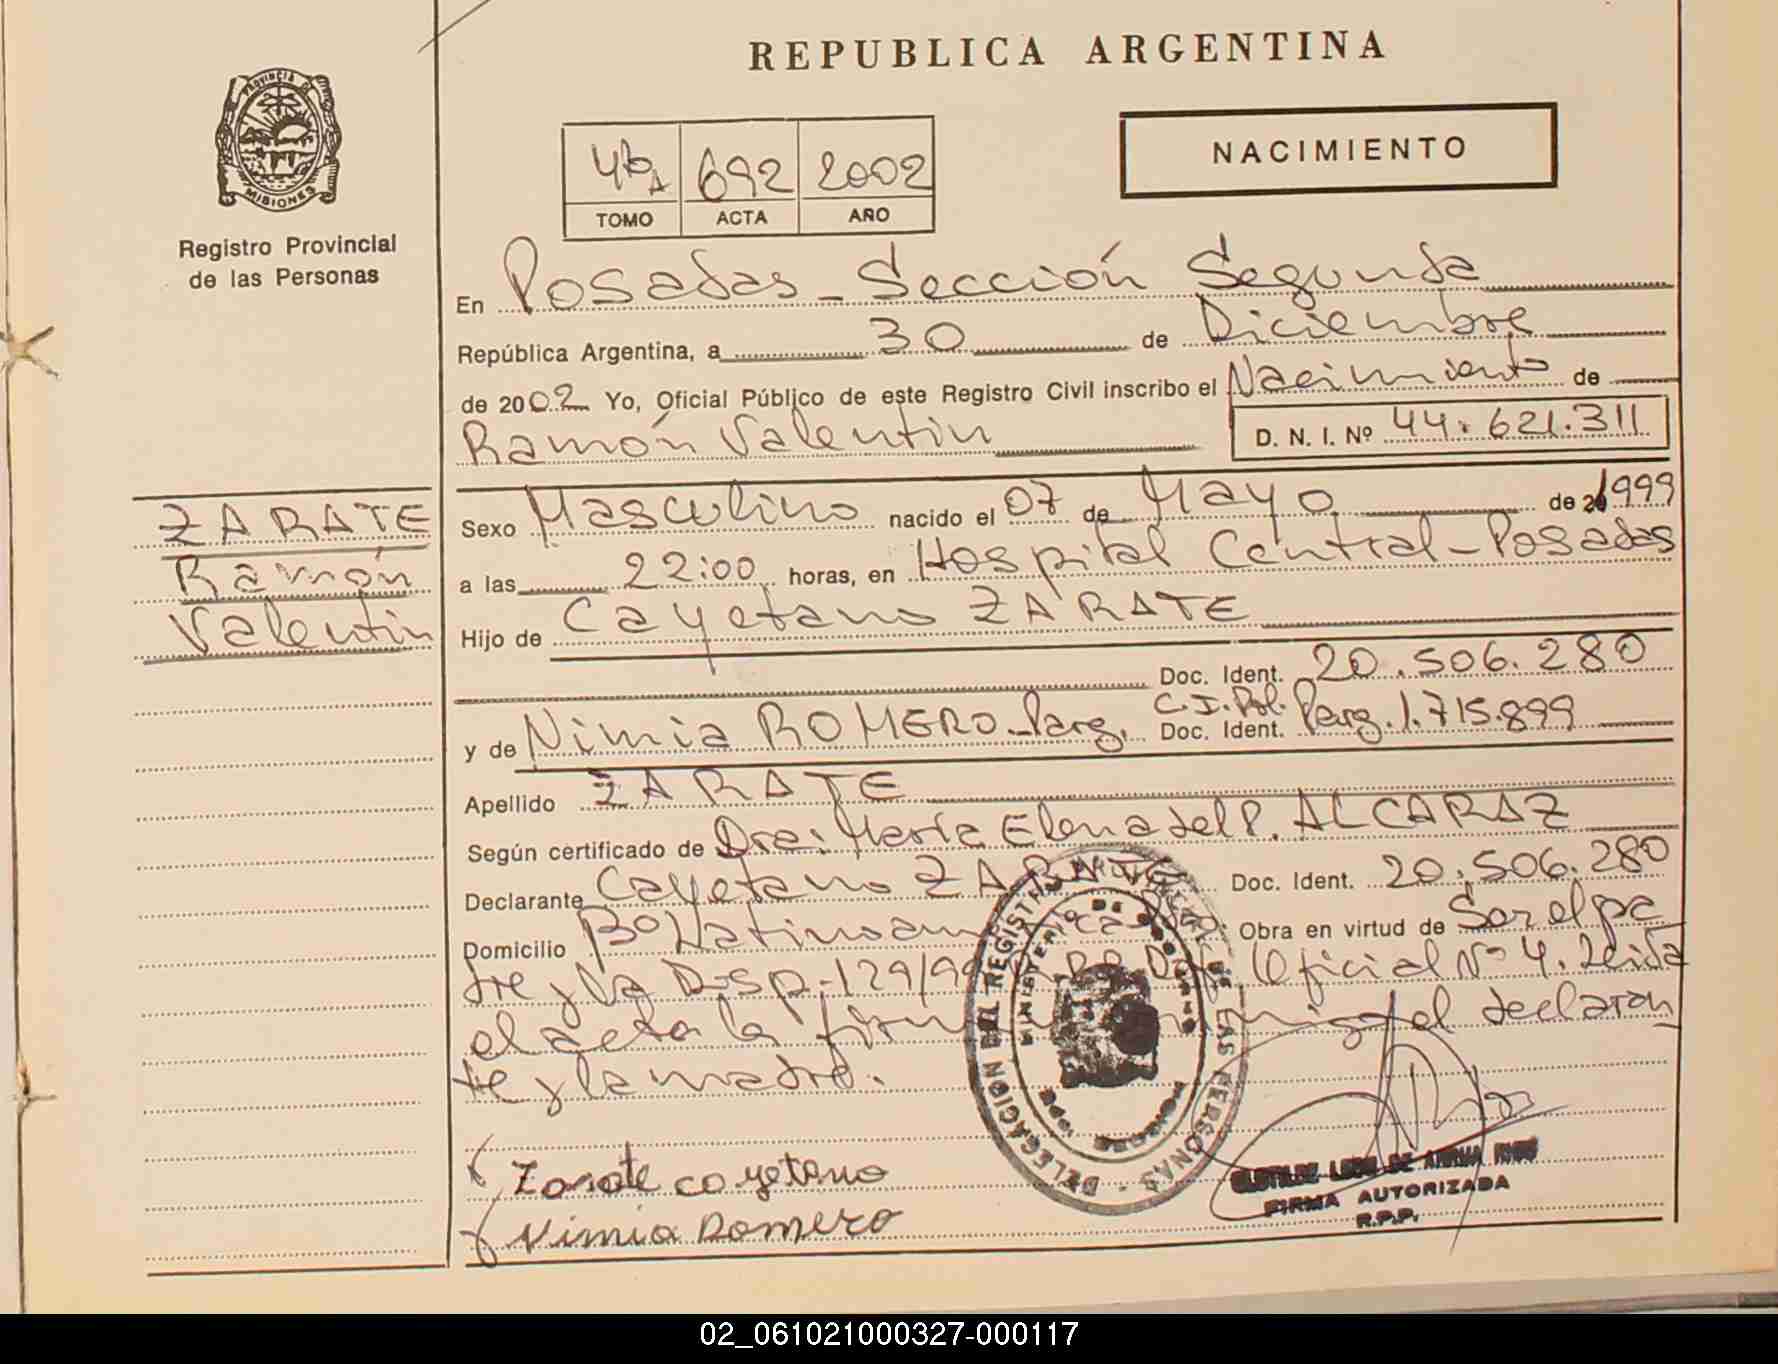 REPUBLICA ARGENTINA
PROVINCIA DE MISIONES
Registro Provincial
de las Personas
692 2002
TOMO ACTA AÑO
NACIMIENTO
En Posadas - Sección Segunda
República Argentina, a 30 de Diciembre
de 2002 Yo, Oficial Público de este Registro Civil inscribo el Nacimiento de
Ramón Valentin
D. N. I. Nº 44.621.311
ZARATE
Ramón
Valentin
Sexo Masculino nacido el 07 de Mayo de 1999
a las 22:00 horas, en Hospital Central - Posadas
Hijo de Cayetano ZARATE
Doc. Ident. 20.506.280
y de Nimia ROMERO - Parg. C.I. Pol. Doc. Ident. Parg. 1.715.899
Apellido ZARATE
Según certificado de Dra: María Elena del P. ALCARAZ
Declarante Cayetano ZARATE Doc. Ident. 20.506.280
Domicilio Bo Latinoam Obra en virtud de Ser el pa
dre y la Disp. 129/99 Oficial Nº 4. Leida
el acta la firman el declaran
te y la madre.
DELEGACION DEL REGISTRO DE LAS PERSONAS
MINISTERIO DE GOBIERNO
Zarate cayetano
Nimia Romero
FIRMA AUTORIZADA
R.P.P.
02_061021000327-000117